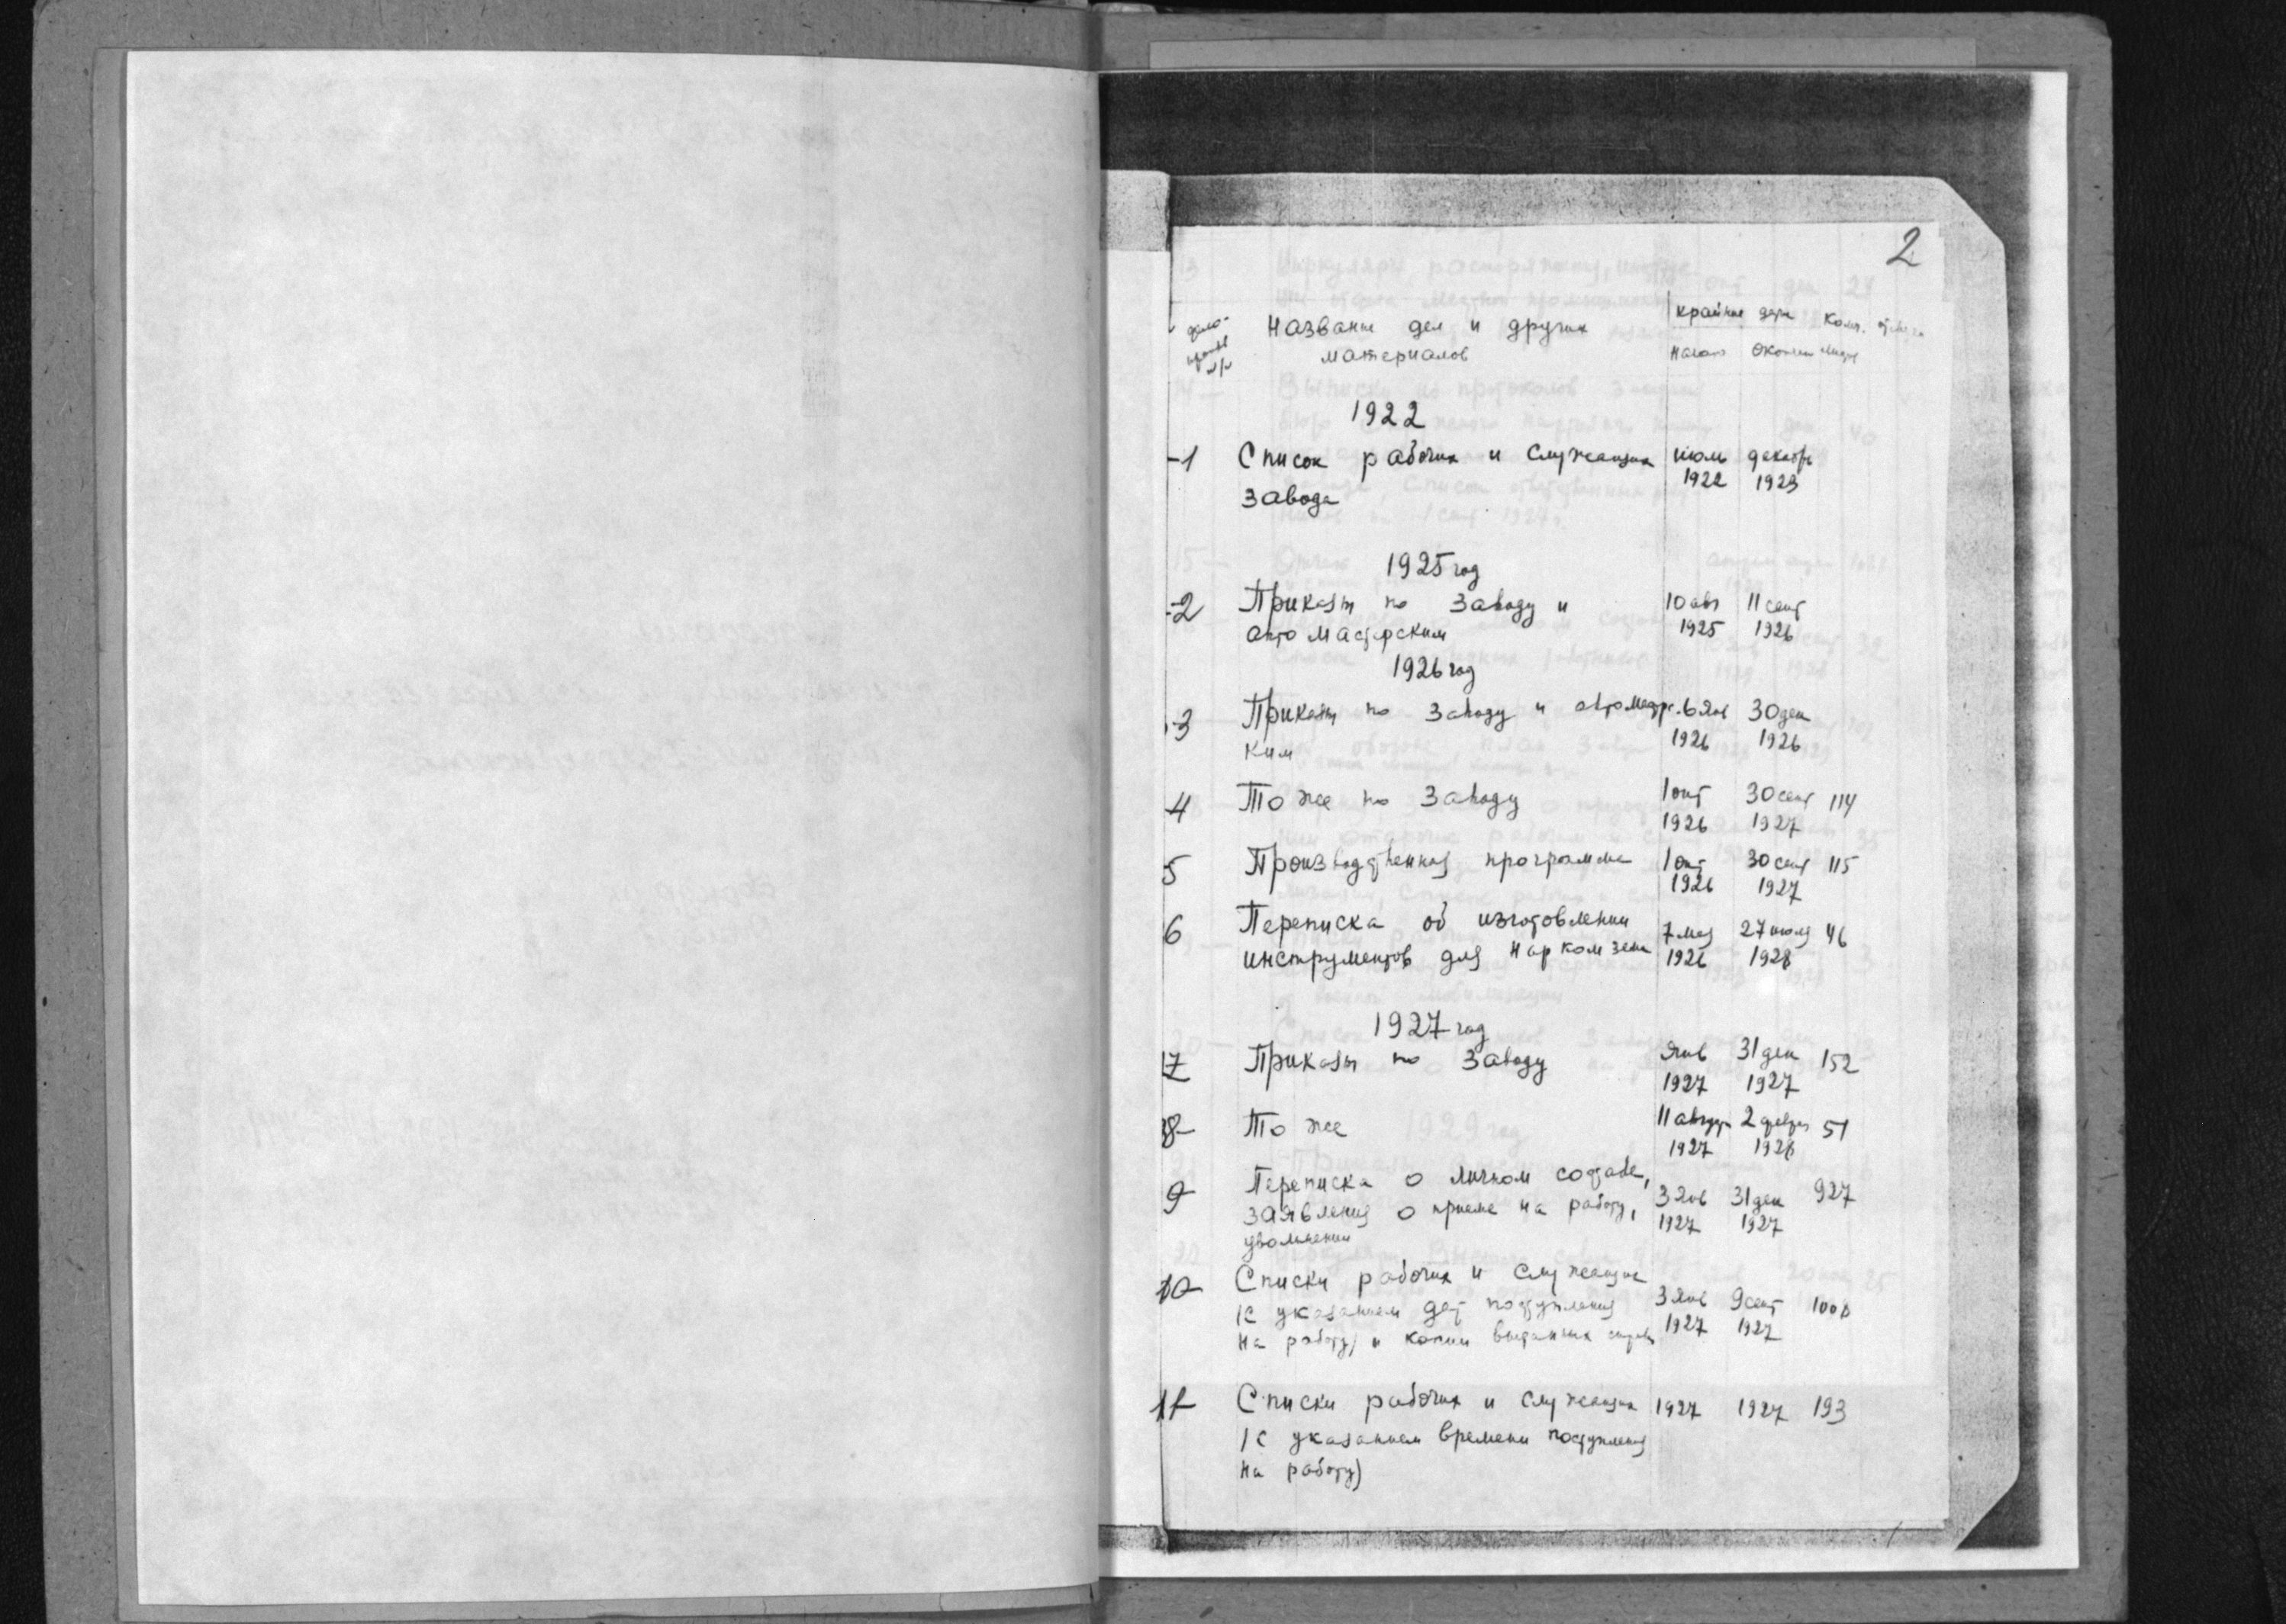 2
Название дел и других крайние даты Колич.
материалов начало окончан
1922
1 Список рабочих и служащих июль декабрь
завода 1922 1923
1925 год
2 Приказы по заводу и 10 авг 11 сент
автомастерским 1925 1926
1926 год
3 Приказы по заводу и автомастерс- 6 янв 30 дек
ким 1926 1926
4 То же по заводу 1 окт 30 сент 114
1926 1927
5 Производственная программа 1 окт 30 сент 115
1926 1927
6 Переписка об изготовлении 7 мая 27 июля 46
инструментов для Наркомзема 1926 1928
1927 год
7 Приказы по заводу янв 31 дек 152
1927 1927
8 То же 11 август 2 феврал 51
1927 1928
9 Переписка о личном составе, 3 янв 31 дек 927
заявления о приеме на работу, 1927 1927
увольнении
10 Списки рабочих и служащих
(с указанием дат поступления 3 янв 9 сент
на работу) и копии выданных 1927 1927
11 Списки рабочих и служащих 1927 1927 193
(с указанием времени поступления
на работу)